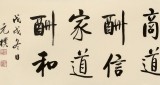 商道
酬信
家道
酬和
戊戌冬日